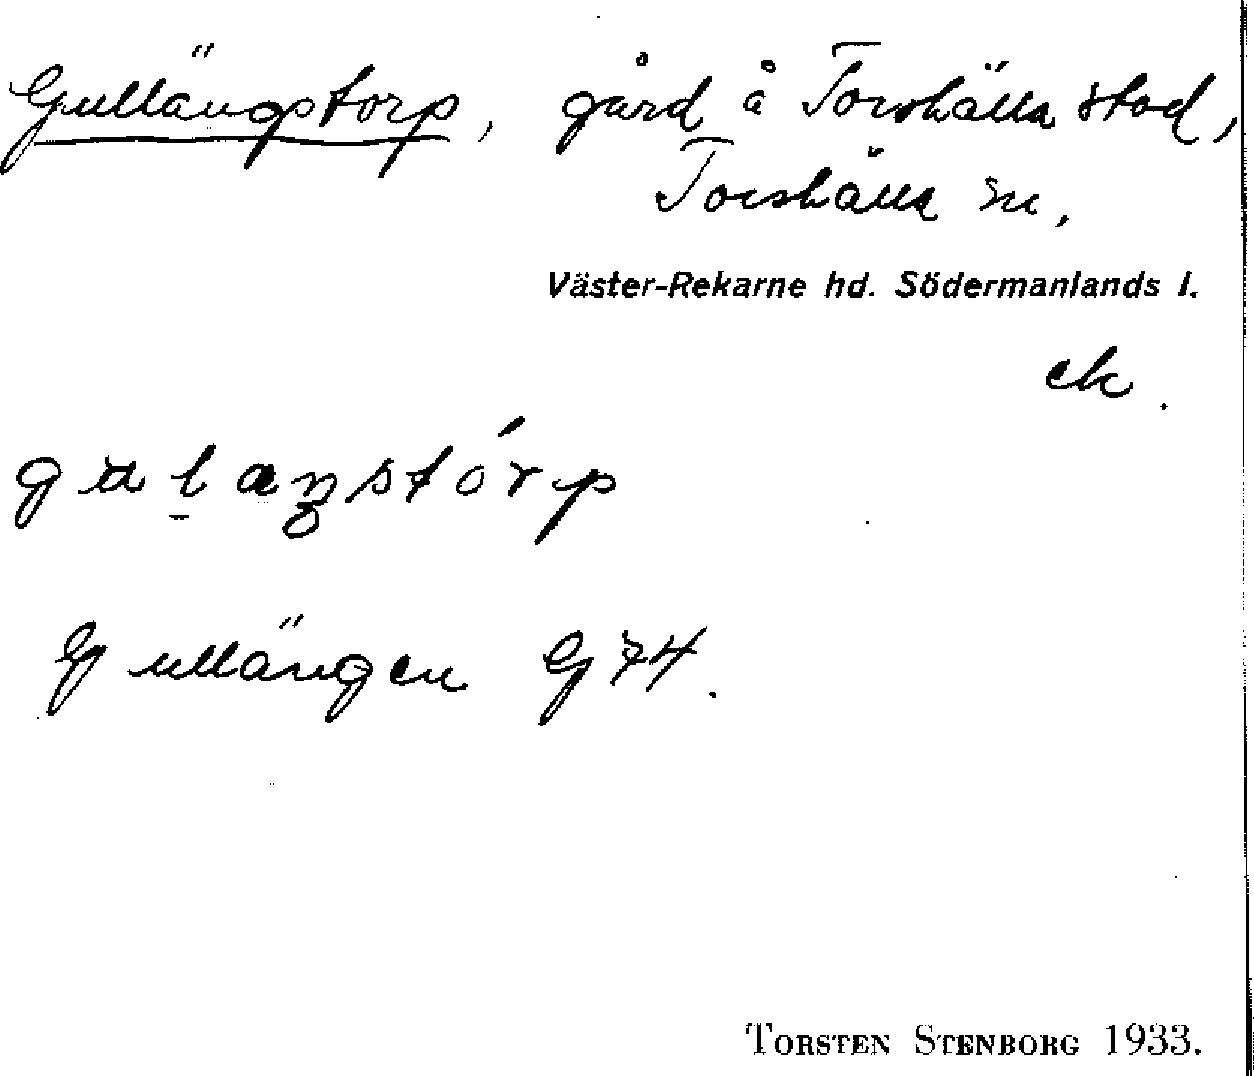 Gullängstorp, gård å Torshälla stad,
Torshälla sn.
Väster-Rekarne hd. Södermanlands l.
ek.
gulaŋstórp
Gullängen G 74.
TORSTEN STENBORG 1933.